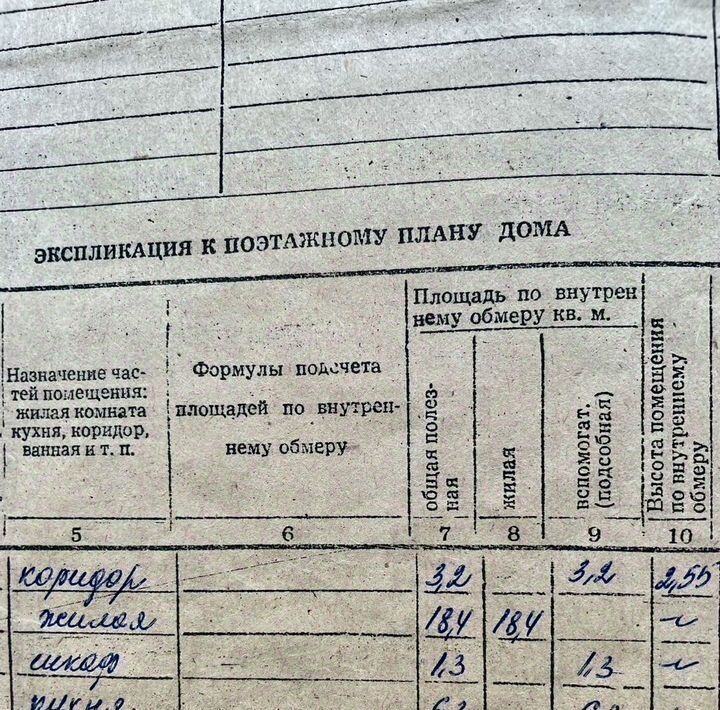 ЭКСПЛИКАЦИЯ К ПОЭТАЖНОМУ ПЛАНУ ДОМА
Площадь по внутрен
нему обмеру кв. м.
Назначение час-
тей помещения:
жилая комната
кухня, коридор,
ванная и т. п.
Формулы подсчета
площадей по внутрен-
нему обмеру
общая полез-
ная
жилая
вспомогат.
(подсобная)
Высота помещения
по внутреннему
обмеру
5 6 7 8 9 10
коридор 3,2 3,2 2,55
жилая 18,4 18,4 ~
шкаф 1,3 1,3 ~
кухня